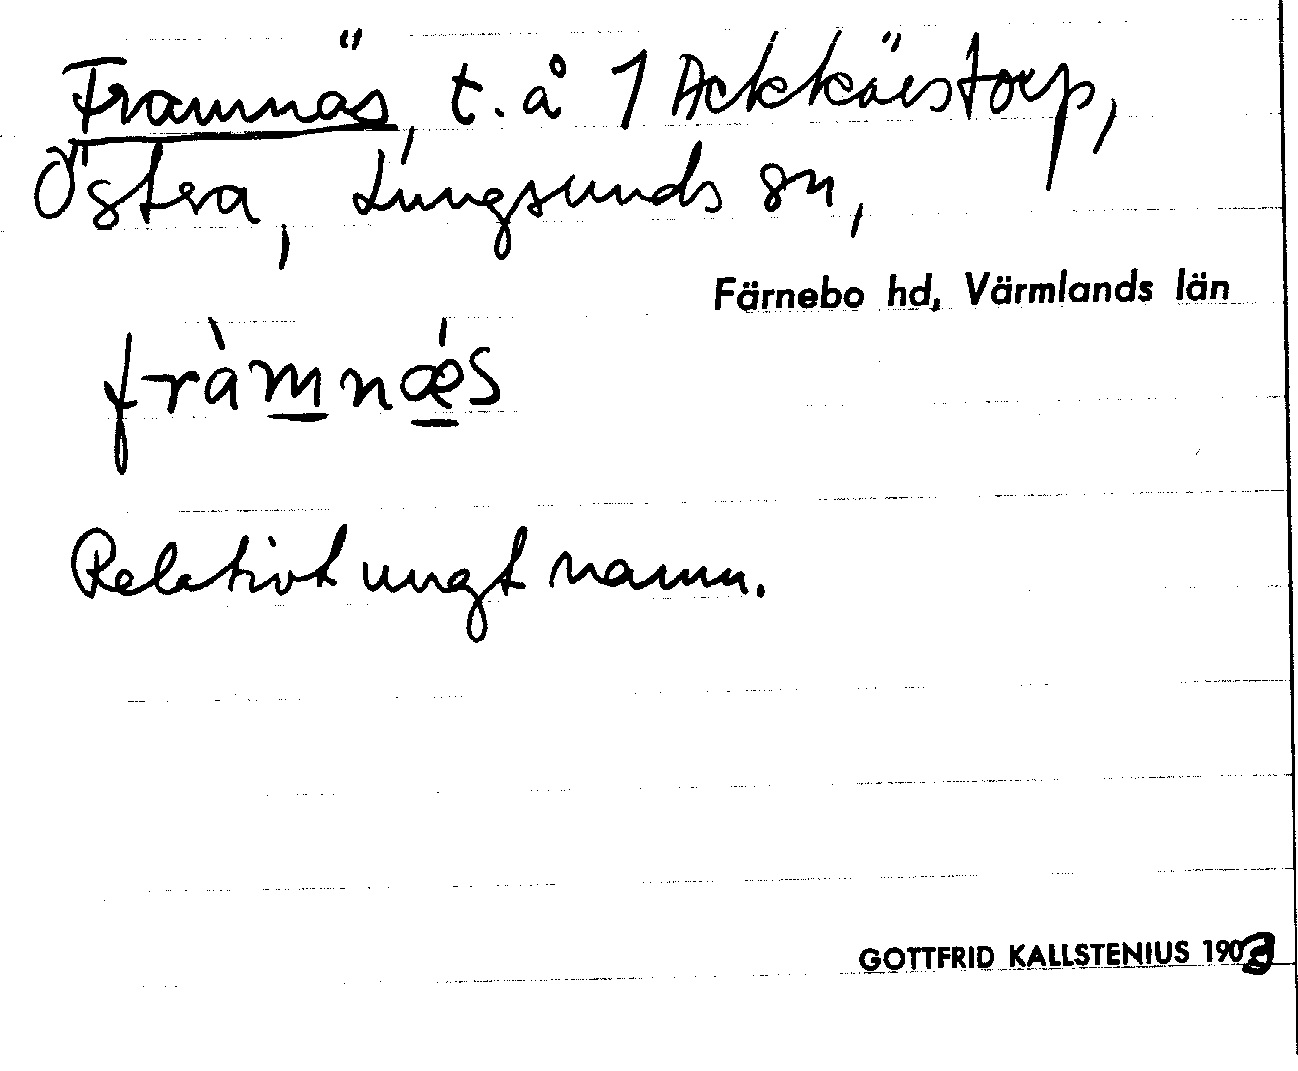 Framnäs, t. å 1 Ackkärstorp,
Östra, Lungsunds sn,
Färnebo hd, Värmlands län
fràmnǽs
Relativt ungt namn.
GOTTFRID KALLSTENIUS 1903